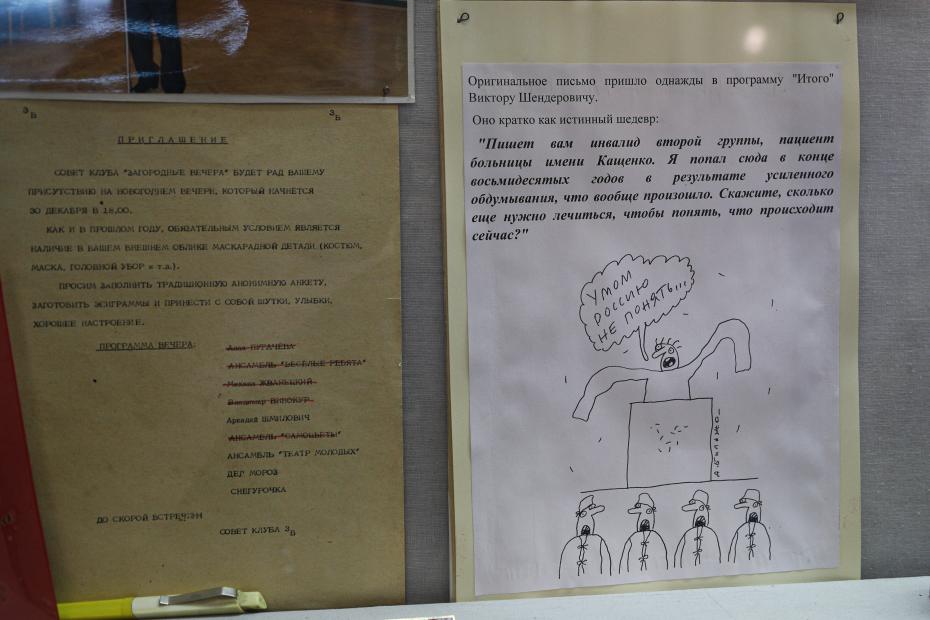 З В
З В
ПРИГЛАШЕНИЕ
СОВЕТ КЛУБА "ЗАГОРОДНЫЕ ВЕЧЕРА" БУДЕТ РАД ВАШЕМУ
ПРИСУТСТВИЮ НА НОВОГОДНЕМ ВЕЧЕРЕ, КОТОРЫЙ НАЧНЕТСЯ
30 ДЕКАБРЯ В 18.00.
КАК И В ПРОШЛОМ ГОДУ, ОБЯЗАТЕЛЬНЫМ УСЛОВИЕМ ЯВЛЯЕТСЯ
НАЛИЧИЕ В ВАШЕМ ВНЕШНЕМ ОБЛИКЕ МАСКАРАДНОЙ ДЕТАЛИ (КОСТЮМ,
МАСКА, ГОЛОВНОЙ УБОР и т.д.).
ПРОСИМ ЗАПОЛНИТЬ ТРАДИЦИОННУЮ АНОНИМНУЮ АНКЕТУ,
ЗАГОТОВИТЬ ЭПИГРАММЫ И ПРИНЕСТИ С СОБОЙ ШУТКИ, УЛЫБКИ,
ХОРОШЕЕ НАСТРОЕНИЕ.
ПРОГРАММА ВЕЧЕРА:
Алла ПУГАЧЕВА
АНСАМБЛЬ "ВЕСЁЛЫЕ РЕБЯТА"
Михаил ЖВАНЕЦКИЙ
Владимир ВИНОКУР
Аркадий ШМИЛОВИЧ
АНСАМБЛЬ "САМОЦВЕТЫ"
АНСАМБЛЬ "ТЕАТР МОЛОДЫХ"
ДЕД МОРОЗ
СНЕГУРОЧКА
ДО СКОРОЙ ВСТРЕЧИ
СОВЕТ КЛУБА З В
Оригинальное письмо пришло однажды в программу "Итого"
Виктору Шендеровичу.
Оно кратко как истинный шедевр:
"Пишет вам инвалид второй группы, пациент
больницы имени Кащенко. Я попал сюда в конце
восьмидесятых годов в результате усиленного
обдумывания, что вообще произошло. Скажите, сколько
еще нужно лечиться, чтобы понять, что происходит
сейчас?"
УМОМ
РОССИЮ
НЕ ПОНЯТЬ...